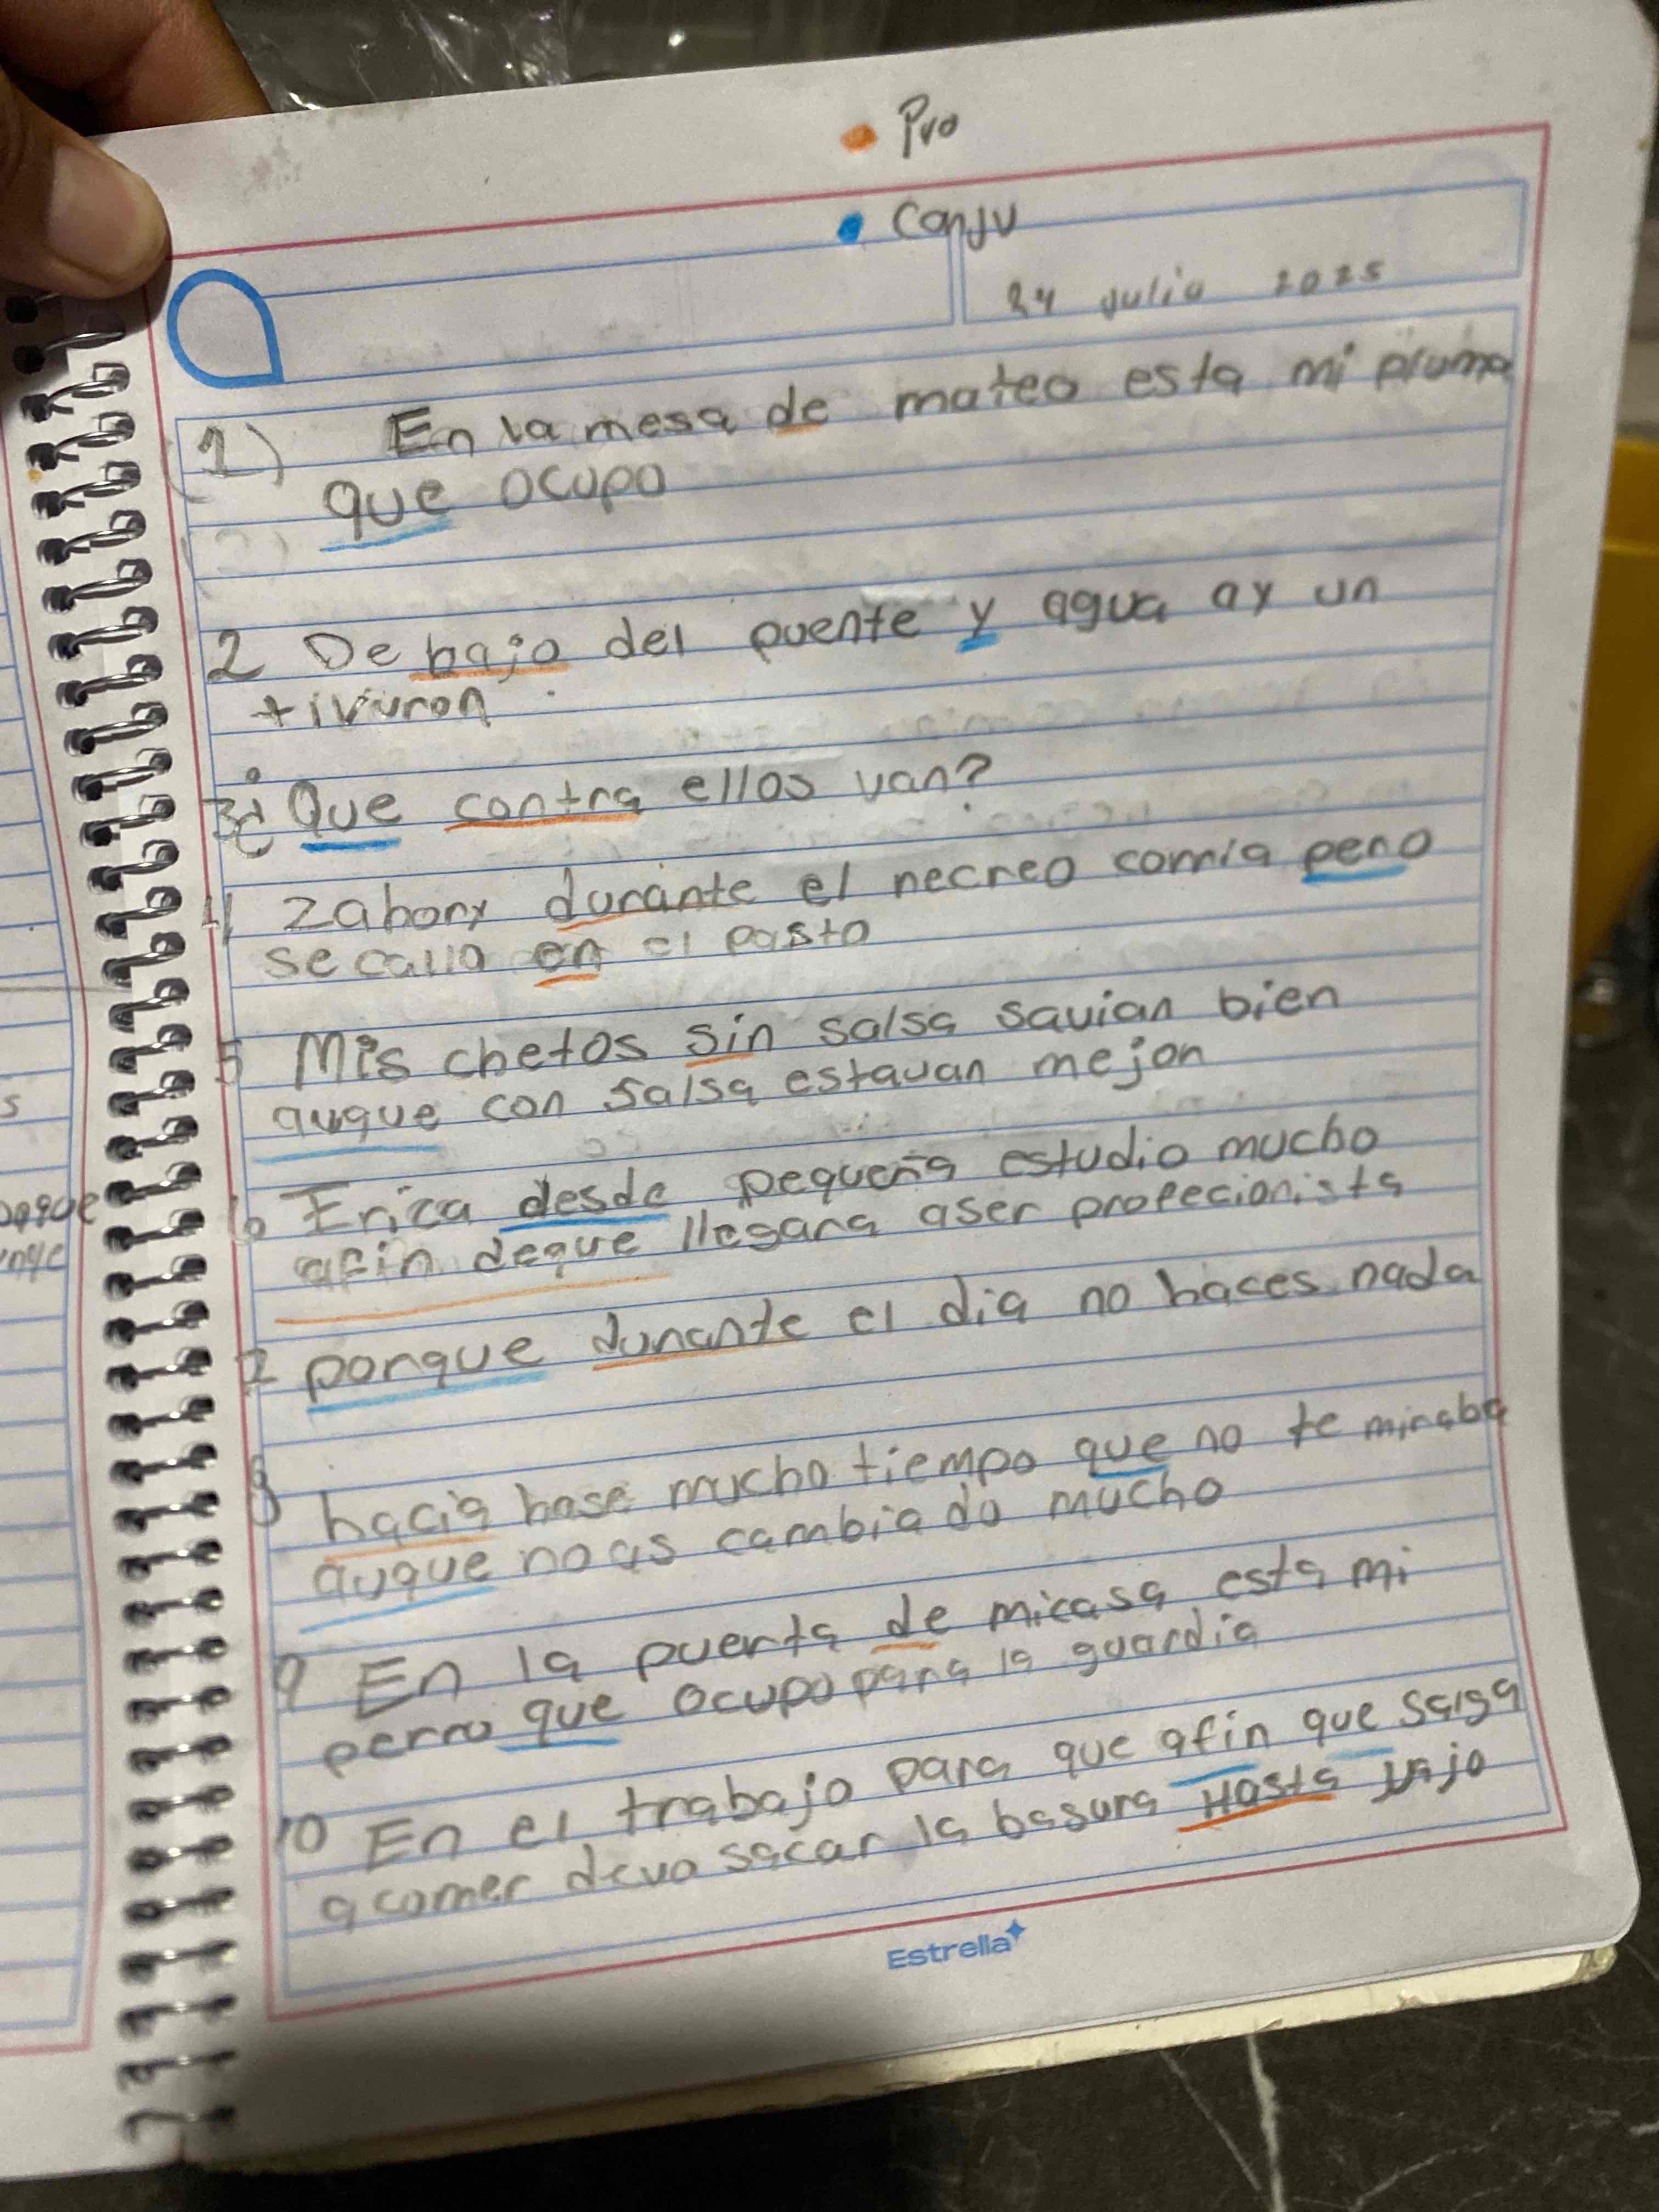 Pro
Conju
24 Julio 2025
1) En la mesa de mateo esta mi pluma
que ocupo
2 De bajo del puente y agua ay un
tivuron
3 ¿Que contra ellos van?
4 Zabory durante el recreo comia pero
se callo en el pasto
5 Mis chetos sin salsa savian bien
auque con salsa estavan mejor
6 Erica desde pequeña estudio mucho
afin deque llegara aser profecionista
7 porque durante el dia no haces nada
8 hacia hase mucho tiempo que no te miraba
auque no as cambiado mucho
9 En la puerta de micasa esta mi
perro que ocupo para la guardia
10 En el trabajo para que afin que salga
a comer devo sacar la basura Hasta
Estrella